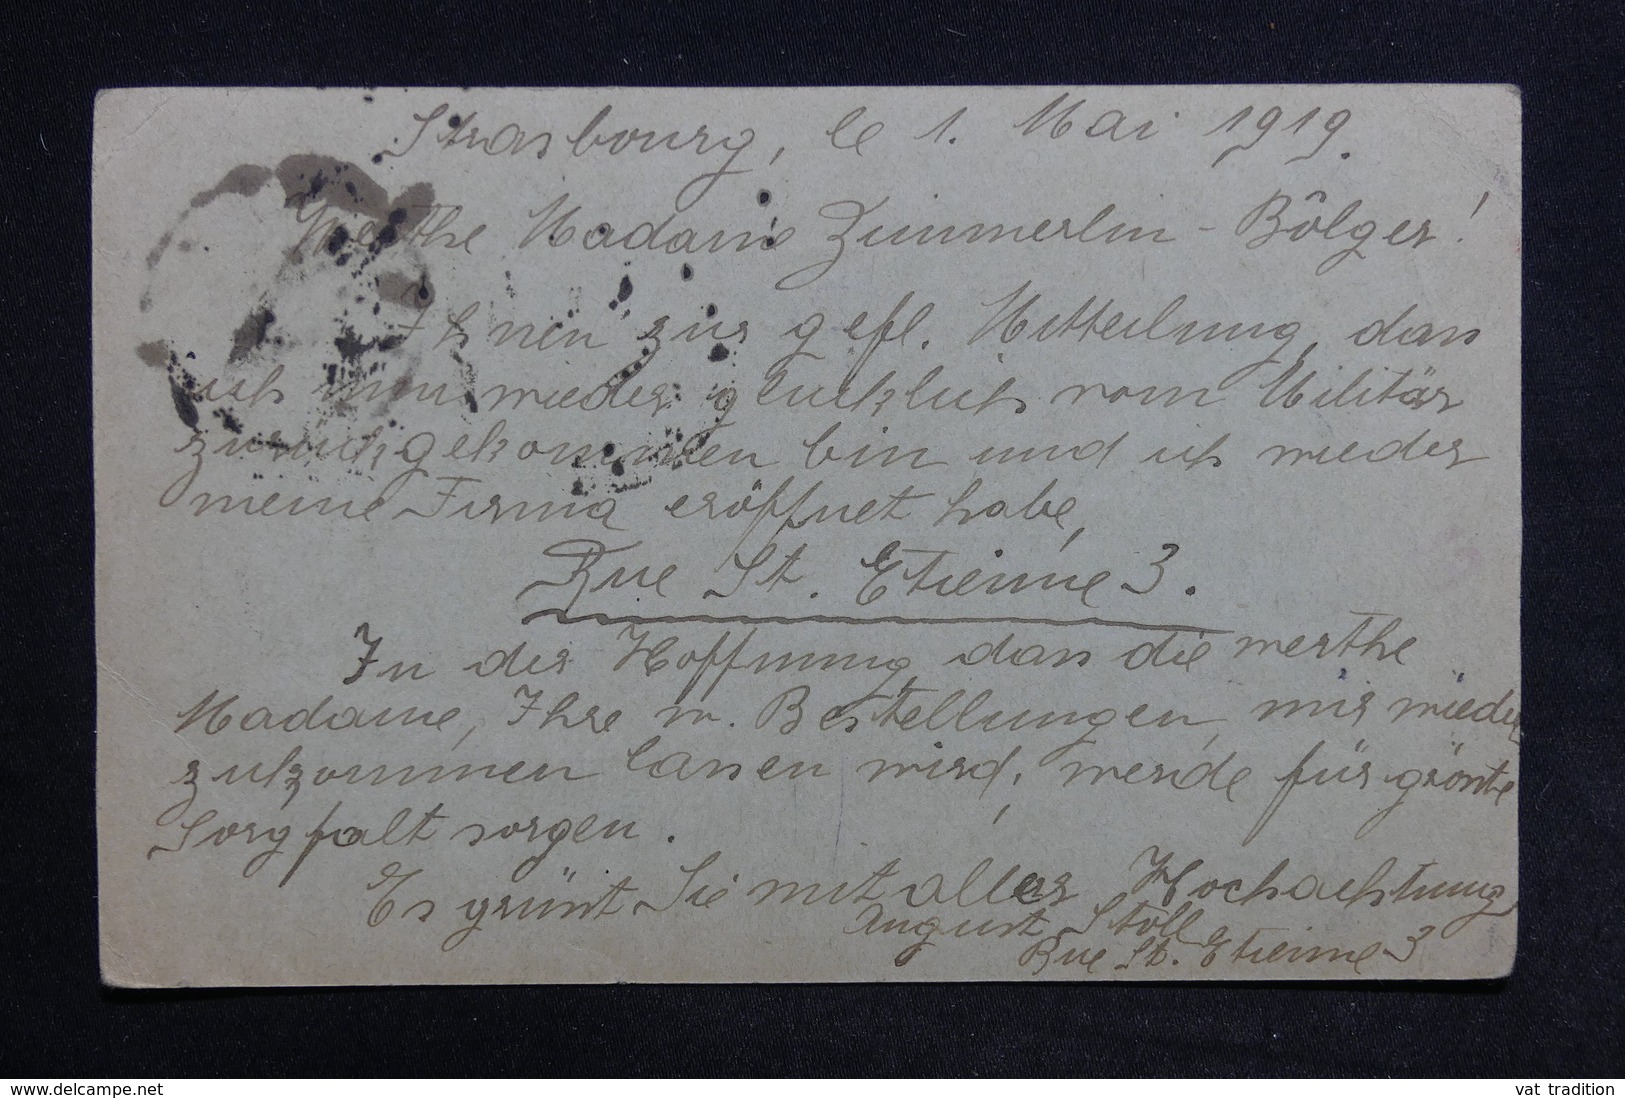 Strasbourg, le 1. Mai 1919.
Werthe Madame Zimmerlin-Bölger!
Ihnen zur gefl. Mitteilung, dass
ich nun wieder glücklich vom Militär
zurückgekommen bin und ich wieder
meine Firma eröffnet habe,
Rue St. Etienne 3.
In der Hoffnung, dass die werthe
Madame, Ihre w. Bestellungen, mir wieder
zukommen lassen wird, werde für grösste
Sorgfalt sorgen.
Es grüsst Sie mit aller Hochachtung
August Stoll
Rue St. Etienne 3
www.delcampe.net
vat tradition